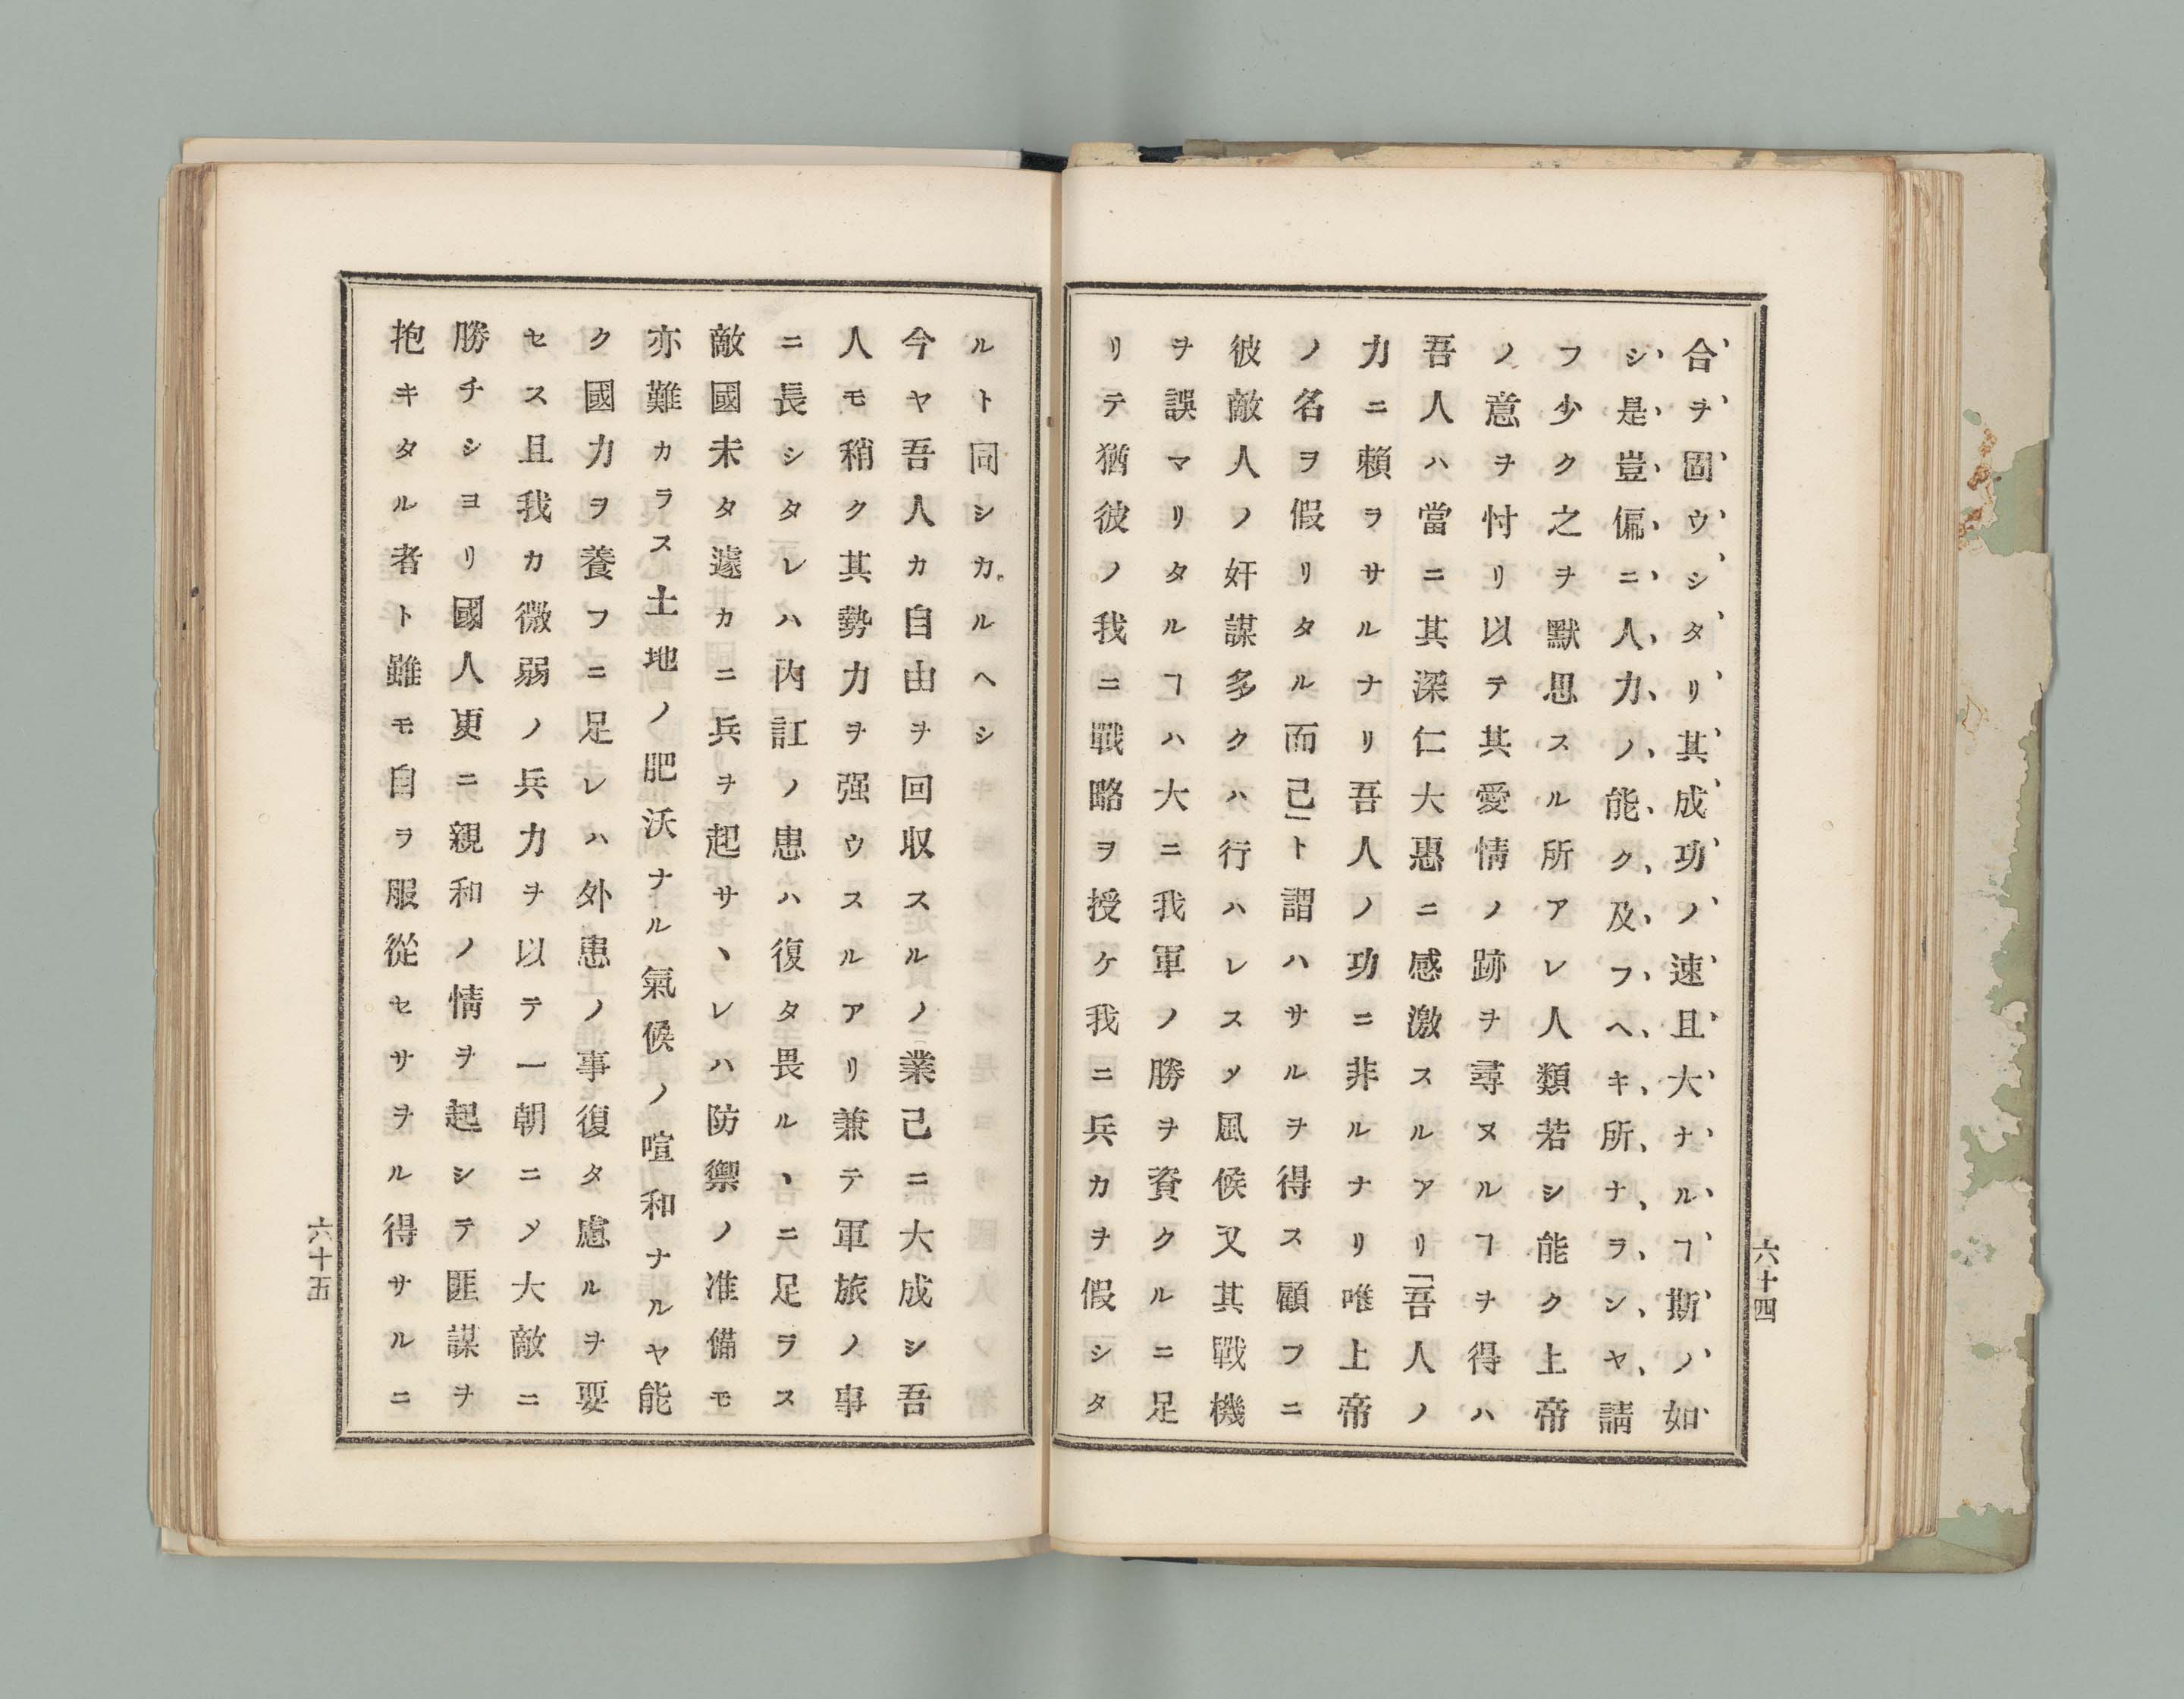 合ヲ固ウシタリ其成功ノ速且大ナルヿ斯ノ如
シ是豈偏ニ人力ノ能ク及フヘキ所ナランヤ請
フ少ク之ヲ默思スル所アレ人類若シ能ク上帝
ノ意ヲ忖リ以テ其愛情ノ跡ヲ尋ヌルヿヲ得ハ
吾人ハ當ニ其深仁大惠ニ感激スルアリ「吾人ノ
力ニ賴ラサルナリ吾人ノ功ニ非ルナリ唯上帝
ノ名ヲ假リタル而己」ト謂ハサルヲ得ス顧フニ
彼敵人ノ奸謀多クハ行ハレスメ風候又其戰機
ヲ誤マリタルヿハ大ニ我軍ノ勝ヲ資クルニ足
リテ猶彼ノ我ニ戰略ヲ授ケ我ニ兵カヲ假シタ
六十四
ルト同シカルヘシ
今ヤ吾人カ自由ヲ回収スルノ業己ニ大成シ吾
人モ稍ク其勢力ヲ强ウスルアリ兼テ軍旅ノ事
ニ長シタレハ內訌ノ患ハ復タ畏ルヽニ足ラス
敵國未タ遽カニ兵ヲ起サヽレハ防禦ノ准備モ
亦難カラス土地ノ肥沃ナル氣候ノ喧和ナルヤ能
ク國力ヲ養フニ足レハ外患ノ事復タ慮ルヲ要
セス且我カ微弱ノ兵力ヲ以テ一朝ニメ大敵ニ
勝チシヨリ國人更ニ親和ノ情ヲ起シテ匪謀ヲ
抱キタル者ト雖モ自ヲ服從セサヲル得サルニ
六十五